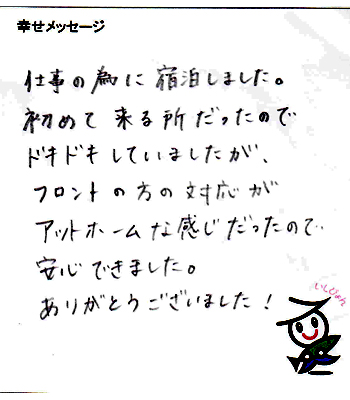 幸せメッセージ
仕事の為に宿泊しました。
初めて来る所だったので
ドキドキしていましたが、
フロントの方の対応が
アットホームな感じだったので
安心できました。
ありがとうございました！